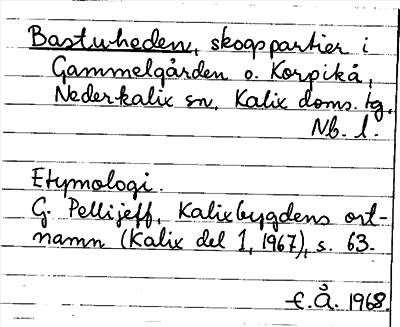 Bastuheden, skogspartier i
Gammelgården o. Korpikå,
Nederkalix sn, Kalix doms. tg,
Nb. l.
Etymologi.
G. Pellijeff, Kalixbygdens ort-
namn (Kalix del 1, 1967), s. 63.
E.Å. 1968